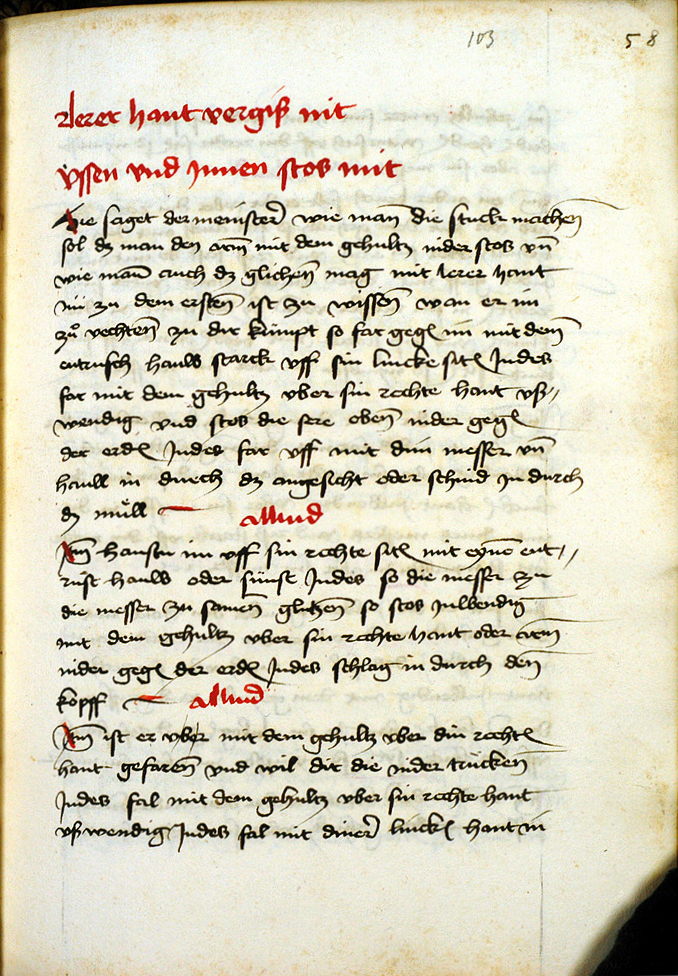 103
58
Lerer hant vergiß nit
Vssen vnd Innen stos mit
Hie saget der meinster wie man die stuck machen
sol dz man den arm mit dem gehultz nider stos vn̄
wie man auch dz glichen mag mit lerer hant
nu zu dem ersten ist zu wissen wan er im
zů vechten zu dir kumpt so far gegen im mit dem
entrusch hauw starck vff sin lincke siten Indes
far mit dem gehultz vber sin rechte hant vß//
wendig vnd stos die sere oben nider gegen
der erden Indes far vff mit dim messer vn̄
hauw in durch dz angesicht oder schnid in durch
dz mull allud
Item haustu im vff sin rechte siten mit eyne ent//
rust hauw oder sunst Indes so die messer zu
die messer zu samen glitzen so stos Inwendig
mit dem gehultz vber sin rechte hant oder arm
nider gegen der erden Indes schlag in durch den
kopff allud
Item ist er vber mit dem gehultz vber din rechten
hant gefaren vnd wil dir die nider trucken
Indes fal mit dem gehultz vber sin rechte hant
vß wendig Indes fal mit diner lincken hant in